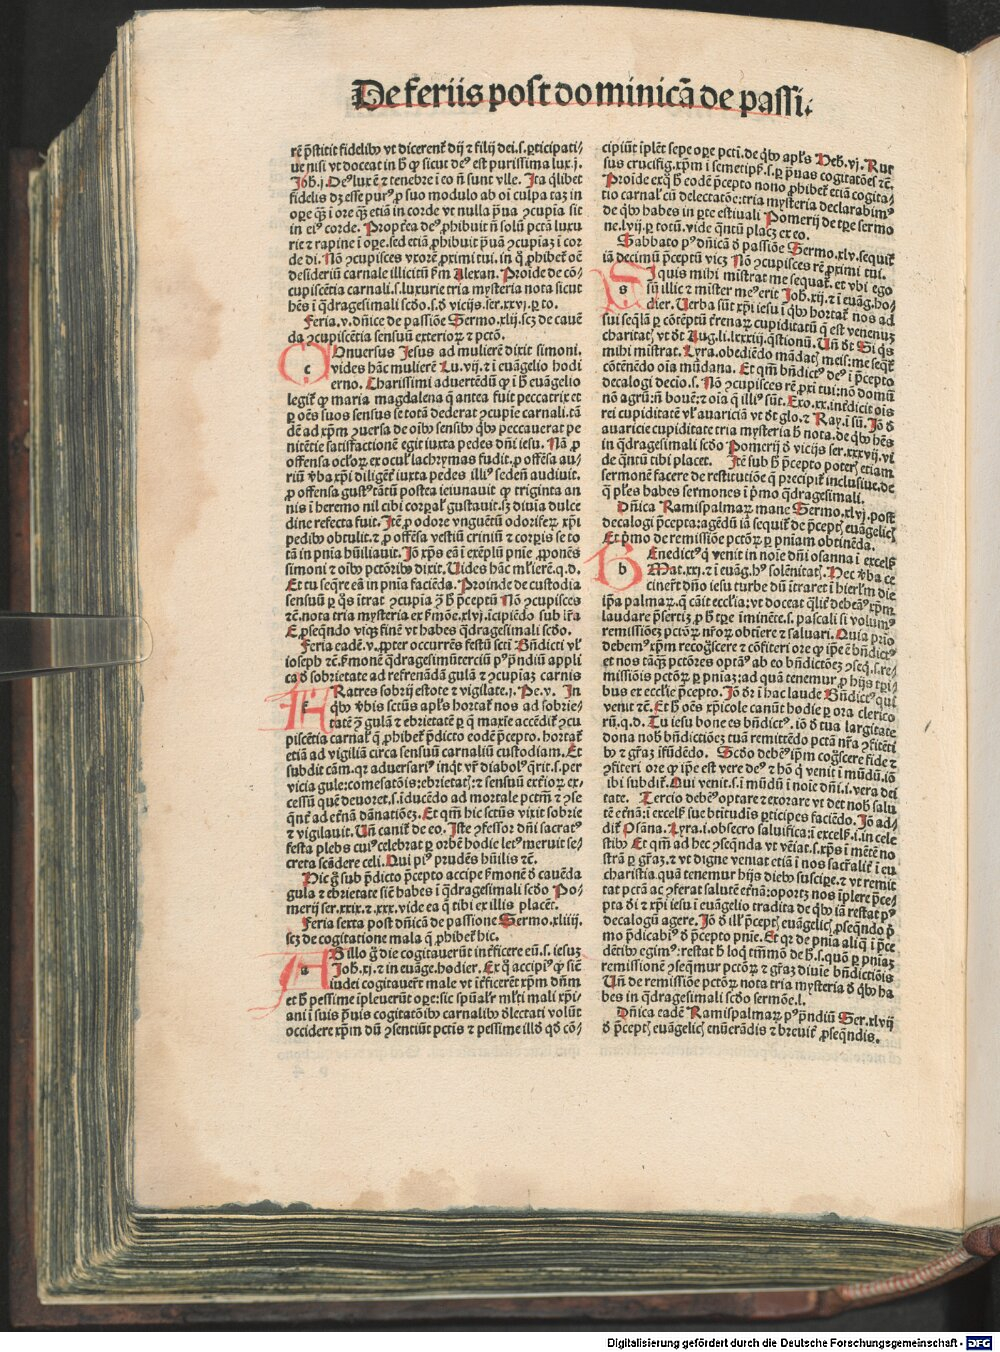 De feriis post dominicā de passi.
rē p̄stitit fidelibꝰ vt dicerent᷑ dij ⁊ filij dei .s. ꝑticipati-
ue nisi vt doceat in h̄ ꝙ sicut deꝰ est purissima lux .j.
Joh̄.j. Deꝰ lux ē ⁊ tenebre ī eo n̄ sunt vlle. Ita q̄libet
fidelis dꝫ esse purꝰ ꝓ suo modulo ab oī culpa tāꝫ in
oꝑe qꝫ̄ ī ore qꝫ̄ etiā in corde vt nulla p̄ua ꝯcupīa sit
in eiꝰ corde. Propt̄ea deꝰ ꝓhibuit n̄ solū pctā luxu
rie ⁊ rapine ī oꝑe. sed etiā ꝓhibuit p̄uā ꝯcupīaꝫ ī cor
de di. Nō ꝯcupisces vxorē ꝓximi tui. in q̄ ꝓhibet᷑ oē
desideriū carnale illicitū ẜm Alexan. Proīde de cō-
cupiscētia carnali .s. luxurie tria mysteria nota sicut
hēs ī q̄dragesimali scd̄o .s. d̄ vicijs. ser.xxvj. ꝑ to.
Feria .v. dn̄ice de passiōe Sermo .xlij. scꝫ de cauē
da ꝯcupiscētia sensuū exterioꝝ ⁊ pctō.
COnuersus Jesus ad mulierē dixit simoni.
vides hāc mulierē Lu.vij. ⁊ ī euāgelio hodi
erno. Charissimi aduertēdū ꝙ ī h̄ euāgelio
legit᷑ ꝙ maria magdalena q̄ antea fuit peccatrix et
ꝑ oēs suos sensus se totā dederat ꝯcupīe carnali. tā
dē ad xp̄m ꝯuersa de oībꝰ sensibꝰ qbꝰ peccauerat pe
nitētie satisfactionē egit iuxta pedes dn̄i iesu. Nā ꝓ
offensa ocl'oꝝ ex ocul' lachrymas fudit. ꝓ offēsa au-
riū v̄ba xp̄i diligēt᷑ iuxta pedes illiꝰ sedēn̄ audiuit.
ꝓ offensa gustꝰ tātū postea ieiunauit ꝙ triginta an
nis ī heremo nil cibi corꝑal' gustauit. sꝫ diuīa dulce
dine refecta fuit. Itē ꝓ odore vnguētū odorifeꝝ xp̄i
pedibꝰ obtulit. ⁊ ꝓ offēsa vestiū criniū ⁊ corꝑis se to
tā in pnīa hūiliauit. Jō xp̄s eā ī exēplū pnīe ꝓponēs
simoni ⁊ oībꝰ pctōribꝰ dixit. Vides hāc ml'ierē. q.d.
Et tu seq̄re eā in pnīa faciēda. Proinde de custodia
sensuū ꝑ q̄s ītrat ꝯcupīa ꝯ̄ h̄ p̄ceptū Nō ꝯcupisces
⁊c. nota tria mysteria ex ẜmōe.xlvj. īcipiēdo sub lr̄a
E. ꝓseq̄ndo vsqꝫ finē vt habes q̄dragesimali scd̄o.
Feria eadē .v. ꝓpter occurrēs festū scti Bn̄dicti vl'
ioseph ⁊c. ẜmonē q̄dragesimū terciū pꝰ prandiū appli
ca d̄ sobrietate ad refrenādā gulā ⁊ ꝯcupīaꝫ carnis
FRatres sobrij estote ⁊ vigilate .j. Pe.v. In
qbꝰ v̄bis sctūs apl's hortat᷑ nos ad sobrie-
tatē ꝯ̄ gulā ⁊ ebrietatē ꝑ q̄ maxīe accēdit᷑ ꝯcu
piscētia carnal' q̄ ꝓhibet᷑ p̄dicto eodē p̄cepto. hortat᷑
etiā ad vigiliā circa sensuū carnaliū custodiam. Et
subdit cām. qꝛ aduersariꝰ inqt vr̄ diabolꝰ q̄rit .s. per
vicia gule: comesatōis: ebrietatꝭ: ⁊ sensuū ext̄ioꝝ ex-
cessū quē deuoret .s. iducēdo ad mortale pctm̄ ⁊ ꝯse
q̄nt᷑ ad et̄nā dānatiōeꝫ. Et qm̄ hic sctūs vixit sobrie
⁊ vigilauit. Vn̄ canit᷑ de eo. Iste ꝯfessor dn̄i sacratꝰ
festa plebs cuiꝰ celebrat ꝑ orbē hodie letꝰ meruit se-
creta scādere celi. Qui piꝰ prudēs hūilis ⁊c.
Hic g̊ sub p̄dicto p̄cepto accipe ẜmonē d̄ cauēda
gula ⁊ ebrietate siē habes ī q̄dragesimali scd̄o Po-
merij ser.xxix. ⁊ .xxx. vide ea q̄ tibi ex illis placēt.
Feria sexta post dn̄icā de passione Sermo .xliiij.
scꝫ de cogitatione mala q̄ ꝓhibet᷑ hic.
AB illo g̊ die cogitauerūt int̄ficere eū .s. iesuꝫ
Joh̄.xj. ⁊ in euāge. hodier. Ex q̄ accipiꝰ ꝙ siē
iudei cogitauer̄t male vt īt̄ficerēt xp̄m dn̄m
et h̄ pessime īpleuerūt oꝑe: sic spūal'r ml'ti mali xp̄i-
ani ī suis p̄uis cogitatōibꝰ carnalibꝰ dl̄ectati volūt
occidere xp̄m dū ꝯsentiūt pctis ⁊ pessime illd̄ qd̄ cō-
cipiūt īplēt sepe oꝑe pcti. de qbꝰ apl's Heb.vj. Rur
sus crucifig. xp̄m ī semetipẜ .s. ꝑ p̄uas cogitatōes ⁊c.
Proīde ex q̄ h̄ eodē p̄cepto nono ꝓhibet᷑ etiā cogita-
tio carnal' cū delectatōe: tria mysteria declarabimꝰ
de qbꝰ habes in ꝑte estiuali Pomerij de tꝑe sermo
ne.lvij. ꝑ totū. vide q̄ntū placꝫ ex eo.
Sabbato pꝰ dn̄icā d̄ passiōe Sermo .xlv. sequit᷑
iā decimū p̄ceptū vicꝫ Nō ꝯcupisces rē ꝓximi tui.
SIquis mihi mistrat me sequat᷑. et vbi ego
sū illic ⁊ mister meꝰ erit Joh̄.xij. ⁊ ī euāg. ho-
dier. Verba sūt xp̄i iesu ī qbꝰ hortat᷑ nos ad
sui seq̄lā ꝑ cōtēptū t̄renaꝝ cupiditatū q̄ est venenuꝫ
charitatꝭ vt dt̄ Aug. li.lxxxiij. q̄stionū. Vn̄ dt̄ Si q̄s
mihi mistrat. Lyra. obediēdo mādatꝭ meis: me seqt᷑
cōtēnēdo oīa mūdana. Et qm̄ bn̄dictꝰ deꝰ ī p̄cepto
decalogi decīo .s. Nō ꝯcupisces rē ꝓxi tui: nō domū
nō agrū: n̄ bouē: ⁊ oīa q̄ illiꝰ sūt. Exo.xx. int̄dicit oīs
rei cupiditatē vl' auariciā vt dt̄ glo. ⁊ Ray. ī sū. Jō d̄
auaricie cupiditate tria mysteria h̄ nota. de qbꝰ hēs
in q̄dragesimali scd̄o Pomerij d̄ vicijs ser.xxxvij. vī
de q̄ntū tibi placet. Itē sub h̄ p̄cepto poterꝭ etiam
sermonē facere de restitutiōe q̄ precipit᷑ inclusiue. de
q̄ pl'es habes sermones ī p̄mo q̄dragesimali.
Dn̄ica Ramispalmaꝝ mane Sermo .xlvj. post
decalogi p̄cepta: agēdū iā sequit᷑ de p̄ceptꝭ euāgelicꝭ
Et p̄mo de remissiōe pctōꝝ ꝑ pniam obtinēda.
BEnedictꝰ q̄ venit in noīe dn̄i osanna ī excelẜ
Mat.xxj. ⁊ ī euāg. hꝰ solēnitatꝭ. Hec v̄ba ce
cinerūt dn̄o iesu turbe dū ītraret ī hierl'm die
ip̄a palmaꝝ. q̄ cāit eccl'ia: vt doceat ql'it᷑ debeāꝰ xp̄m
laudare p̄sertiꝫ ꝓ h̄ tꝑe īminēte .s. pascali si volumꝰ
remissiōeꝫ pctōꝝ nr̄oꝝ obtiere ⁊ saluari. Quia prīo
debemꝰ xp̄m recog̊scere ⁊ cōfiteri ore ꝙ ip̄e ē bn̄dictꝰ
et nos tāqꝫ pctōres optāꝰ ab eo bn̄dictōeꝫ ꝯseq̄ .s. re-
missiōis pctōꝝ ꝑ pniaꝫ: ad quā tenemur ꝑ hijs tp̄i-
bus ex eccl'ie p̄cepto. Jō dr̄ ī hac laude Bn̄dictꝰ qui
venit ⁊c. Et h̄ oēs xp̄icole canūt hodie ꝑ ora clerico
rū. q.d. Tu iesu bone es bn̄dictꝰ. iō d̄ tua largitate
dona nob̄ bn̄dictiōeꝫ tuā remittēdo pctā nr̄a ꝯfitēti
bꝰ ⁊ gr̄aꝫ ifūdēdo. Scd̄o debēꝰ ip̄m cog̊scere fide ⁊
ꝯfiteri ore ꝙ ip̄e est vere deꝰ ⁊ hō q̄ venit ī mūdū. iō
ibi subdit᷑. Qui venit .s. ī mūdū ī noīe dn̄i .i. vera dei
tate. Tercio debēꝰ optare ⁊ exorare vt det nob̄ salu
tē et̄nā: ī excelẜ sue btitudīs ꝑticipes faciēdo. Jō ad-
dit᷑ Osāna. Lyra .i. obsecro saluifica: ī excelẜ .i. in cele
stibꝰ Et qm̄ ad hec ꝯseq̄nda vt vēiat .s. xp̄s ī mētē no
strā ꝑ gr̄aꝫ. ⁊ vt digne veniat etiā ī nos sacr̄alit᷑ ī eu
charistia quā tenemur hijs diebꝰ suscipe. ⁊ vt remit
tat pctā ac ꝯferat salutē et̄nā: oportꝫ nos īplere p̄ce-
pta dī ⁊ xp̄i iesu ī euāgelio tradita de qbꝰ iā restat pꝰ
decalogū agere. Jō d̄ ill' p̄ceptꝭ euāgelicꝭ ꝓseq̄ndo p̄
mo p̄dicabiꝰ d̄ p̄cepto pnīe. Et qꝛ de pnīa aliqꝫ ī p̄ce
dētibꝰ egimꝰ: restat h̄ loq̄ tm̄mō de h̄ .s. quō ꝑ pniaꝫ
remissionē ꝯseq̄mur pctōꝝ ⁊ gr̄aꝫ diuīe bn̄dictiōis
Vn̄ de remissiōe pctōꝝ nota tria mysteria d̄ qbꝰ ha
bes in q̄dragesimali scd̄o sermōe.l.
Dn̄ica eadē Ramispalmaꝝ pꝰ p̄ndiū Ser.xlvij
d̄ p̄ceptꝭ euāgelicꝭ enūerādis ⁊ breuit᷑ ꝓseq̄ndis.
Digitalisierung gefördert durch die Deutsche Forschungsgemeinschaft - DFG